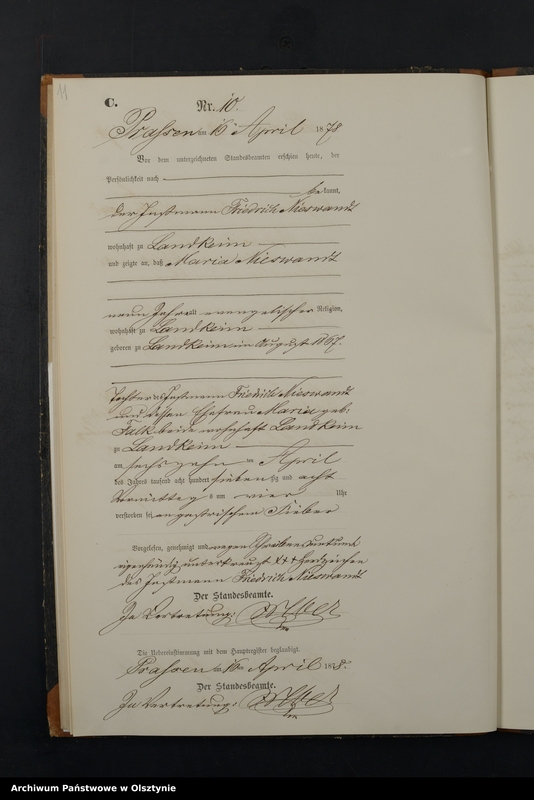 11
C.
Nr. 10.
Prassen am 16 April 1878
Vor dem unterzeichneten Standesbeamten erschien heute, der
Persönlichkeit nach
bekannt,
der Instmann Friedrich Nieswandt
wohnhaft zu Landkeim
und zeigte an, daß Maria Nieswandt
neun Jahr alt evangelischer Religion,
wohnhaft zu Landkeim
geboren zu Landkeim im August 1867.
Tochter Instmann Friedrich Nieswandt
und dessen Ehefrau Maria geb:
Falk beide wohnhaft Landkeim
zu Landkeim
am sechszehn ten April
des Jahres tausend acht hundert siebenzig und acht
Vormittags um vier Uhr
verstorben sei, an gastrischem Fieber
Vorgelesen, genehmigt und wegen
eigenhändig unterkreuzt +++ Handzeichen
des Instmann Friedrich Nieswandt
Der Standesbeamte.
In Vertretung:
Die Uebereinstimmung mit dem Hauptregister beglaubigt.
Prassen am 16ten April 1878.
Der Standesbeamte.
In Vertretung:
Archiwum Państwowe w Olsztynie